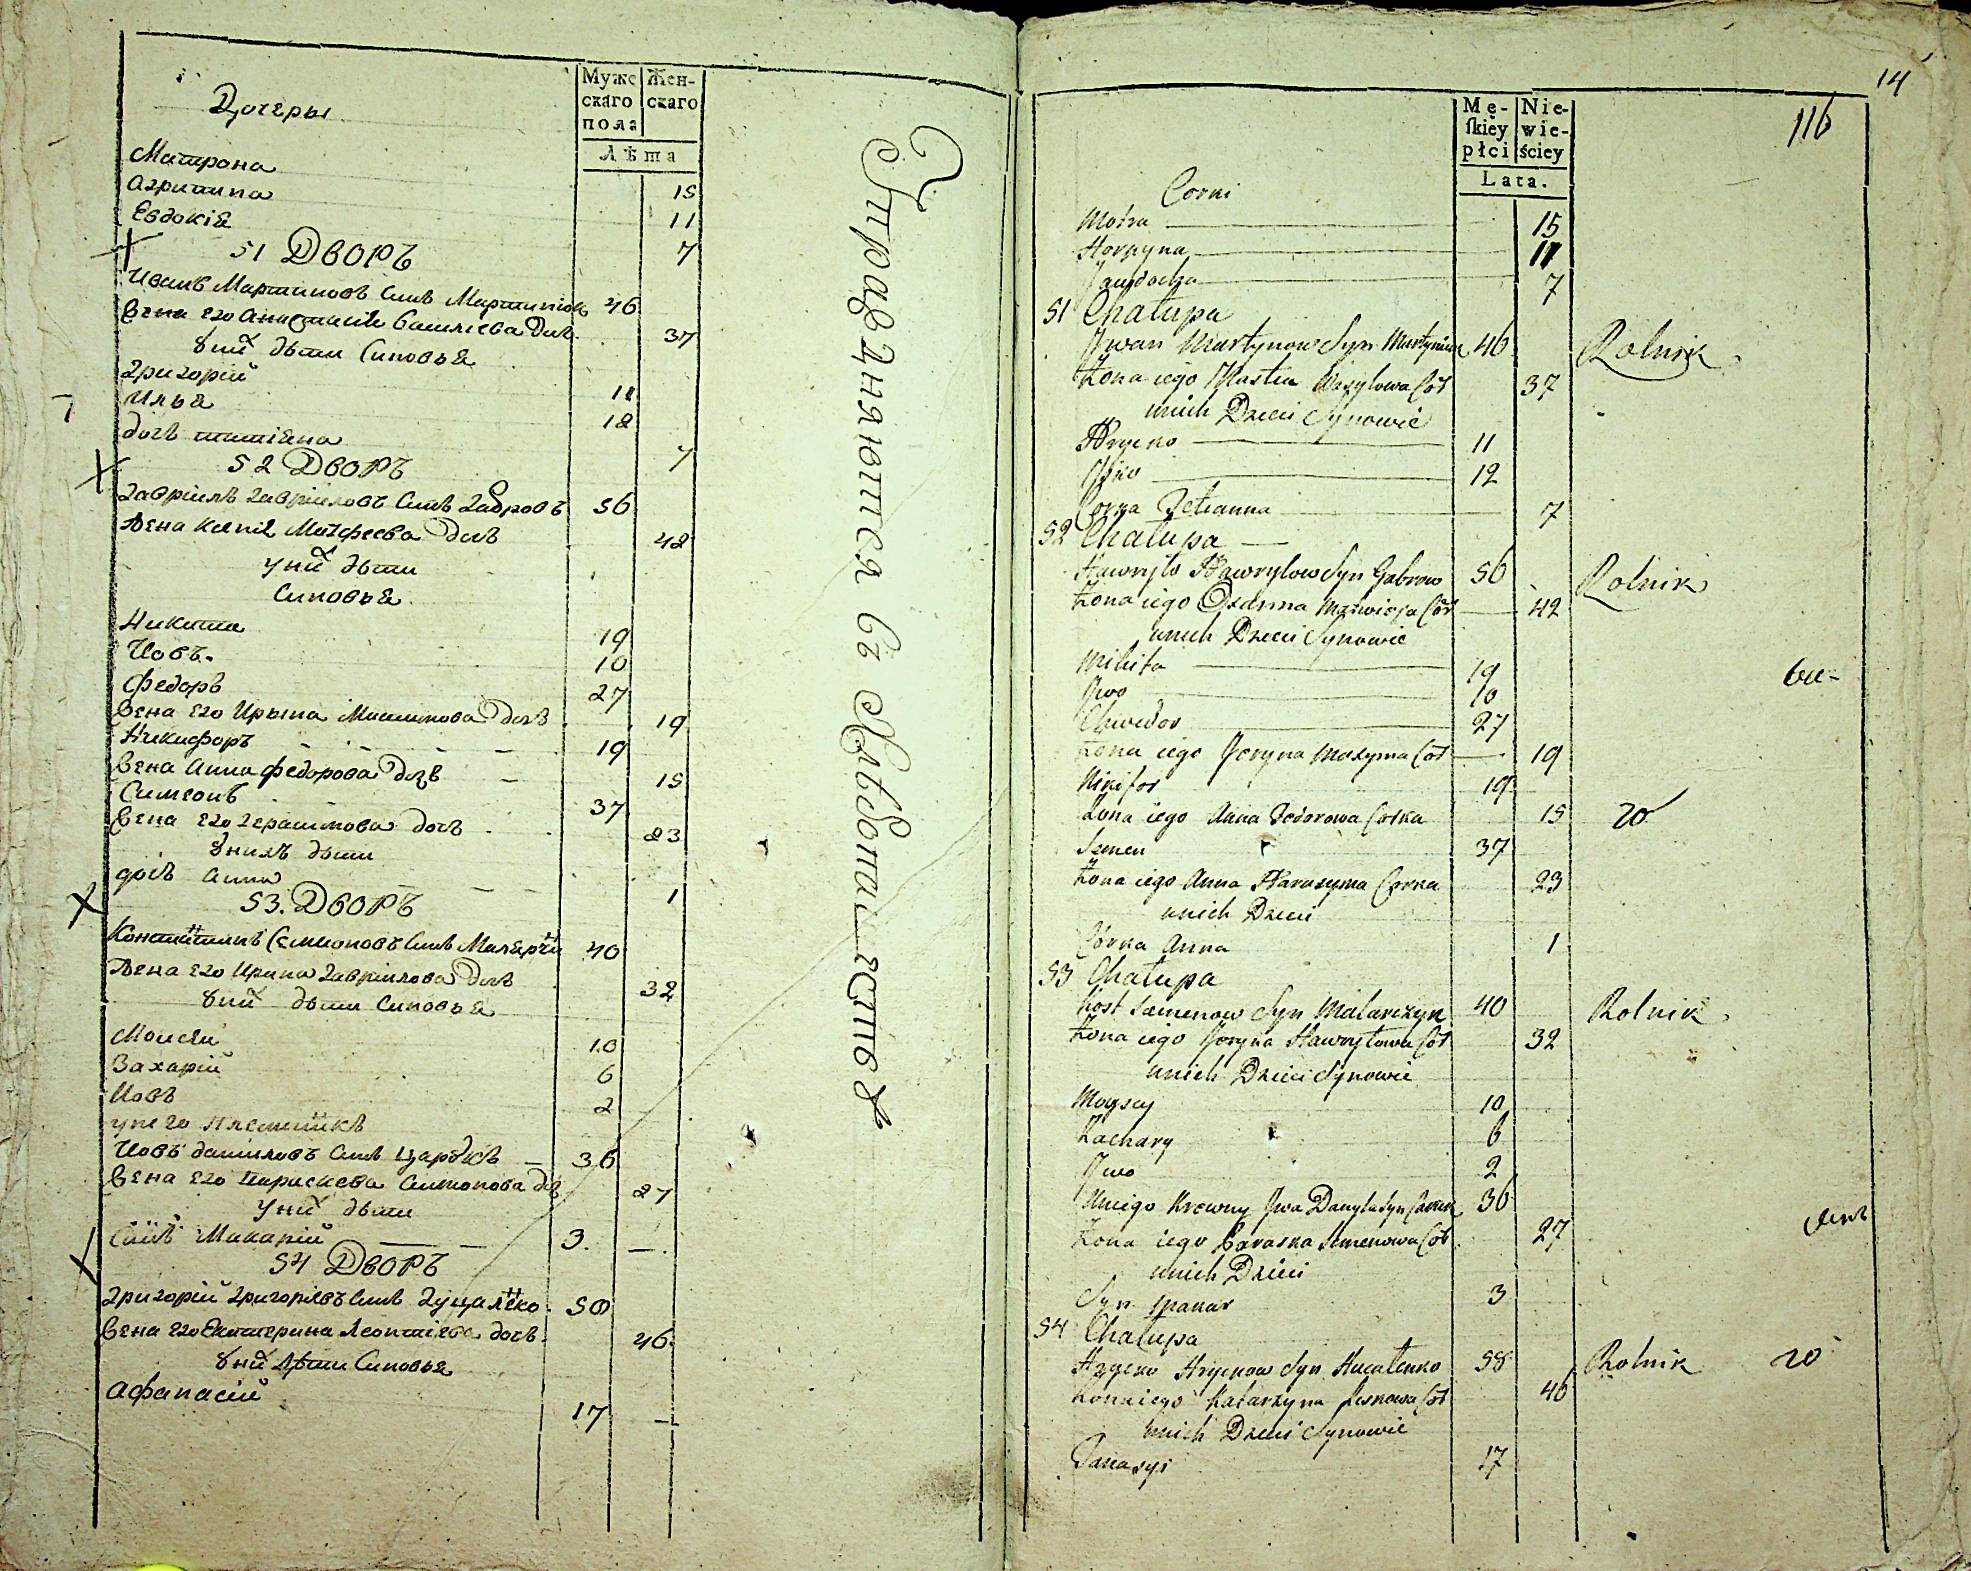 Муже
скаго
пола
Жен-
скаго
Лѣта
Дочеры
Матрона 15
Агрипина 11
Евдокія 7
51 Дворъ
Иванъ Мартиновъ Синъ Мартинюкъ 46
Жена его Анастасія Василієва Дочь 37
Григорій 11
Илья 12
дочь татіяна 7
52 Дворъ
Гавріилъ Гавріиловъ Синъ Габровъ 56
Жена Матфеева Дочь 42
у них дѣти
Синовья
Никита 19
Иовъ 10
Федоръ 27
Жена его Ирына Максимова Дочь 19
Никифоръ 19
Жена Анна федорова Дочь 15
Симеонъ 37
Жена его Герасимова дочь 23
у нихъ дѣти
дочь Анна 1
53. Дворъ
Константинъ Семионовъ Синъ 40
Жена его Ирина Гавріилова Дочь 32
у них дѣти Синовья
Моисей 10
Захарій 6
Иовъ 2
у него племянникъ
Иовъ даниловъ Синъ Царукъ 36
Жена его Параскева Симонова Дочь 27
у них дѣти
Синъ Макарій 3.
54 Дворъ
Григорій Григоріевъ Синъ Гуцаленко 50
Жена его Екатерина Леонтієва дочь 46
у них дѣти Синовья
Афанасій 17
Упраждняются въ Хлѣбопашествѣ
14
116
Mę-
ſkiéy
płci
Nie-
wie-
ściey
Lata.
Corni
Motra 15
Horpyna 11
Jawdocha 7
51 Chałupa
Jwan Martynow Syn Martyniuk 46 Rolnik
Żona iego Nastia Wasylowa Cór 37
unich Dzieci Synowie
Hrycko 11
Jlko 12
Corka Tetianna 7
52 Chałupa
Hawryło Hawryłow Syn Gabrow 56 Rolnik
Żona iego Oxenna Matwieja Cór 42
unich Dzieci Synowie
Mikita 19
Jwo 10
Chwedor 27
Żona iego Jeryna Maxyma Cór 19
Nikifor 19
Żona iego Anna Fedorowa Corka 15
Semen 37
Żona iego Anna Harasyma Corka 23
unich Dzieci
Córka Anna 1
53 Chałupa
Kost Semenow Syn Malarczyk 40 Rolnik
Żona iego Jeryna Hawryłowa Cór 32
unich Dzieci Synowie
Moysey 10
Zachary 6
Jwo 2
Uniego Krewny Jwa Danyła Syn Caruk 36
Żona iego Paraska Semenowa Cór 27
unich Dzieci
Syn Makar 3
54 Chałupa
Hrycko Hryckow Syn Hucalenko 58 Rolnik
Żona iego Katarzyna Leskowa Cór 46
unich Dzieci Synowie
Panasyi 17